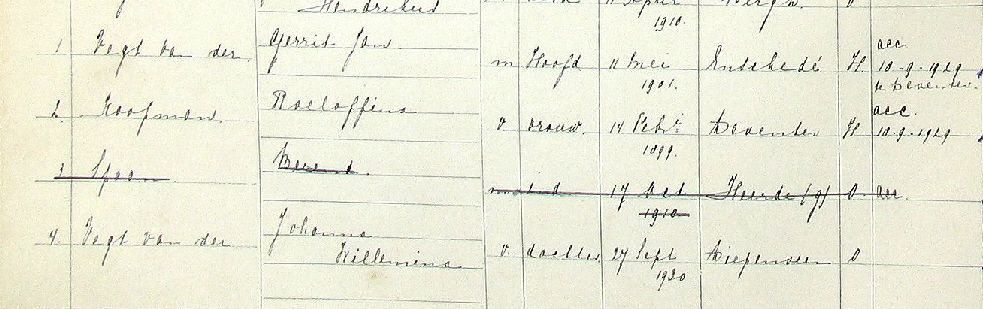 Hendrikus
1910.
1 Vegt van der Gerrit Jan. m Hoofd 11 Mei 1901. Enschedé H acc. 10-9-1929 te Deventer.
2. Koopman Roeloffina v vrouw. 14 Febr. 1899. Deventer H acc. 10.9.1929
3 Spaan Berend. 17 Oct 1910 Heerde (g) O. acc.
4. Vegt van der Johanna Willemina v dochter 27 Sept 1930 Diepenveen O